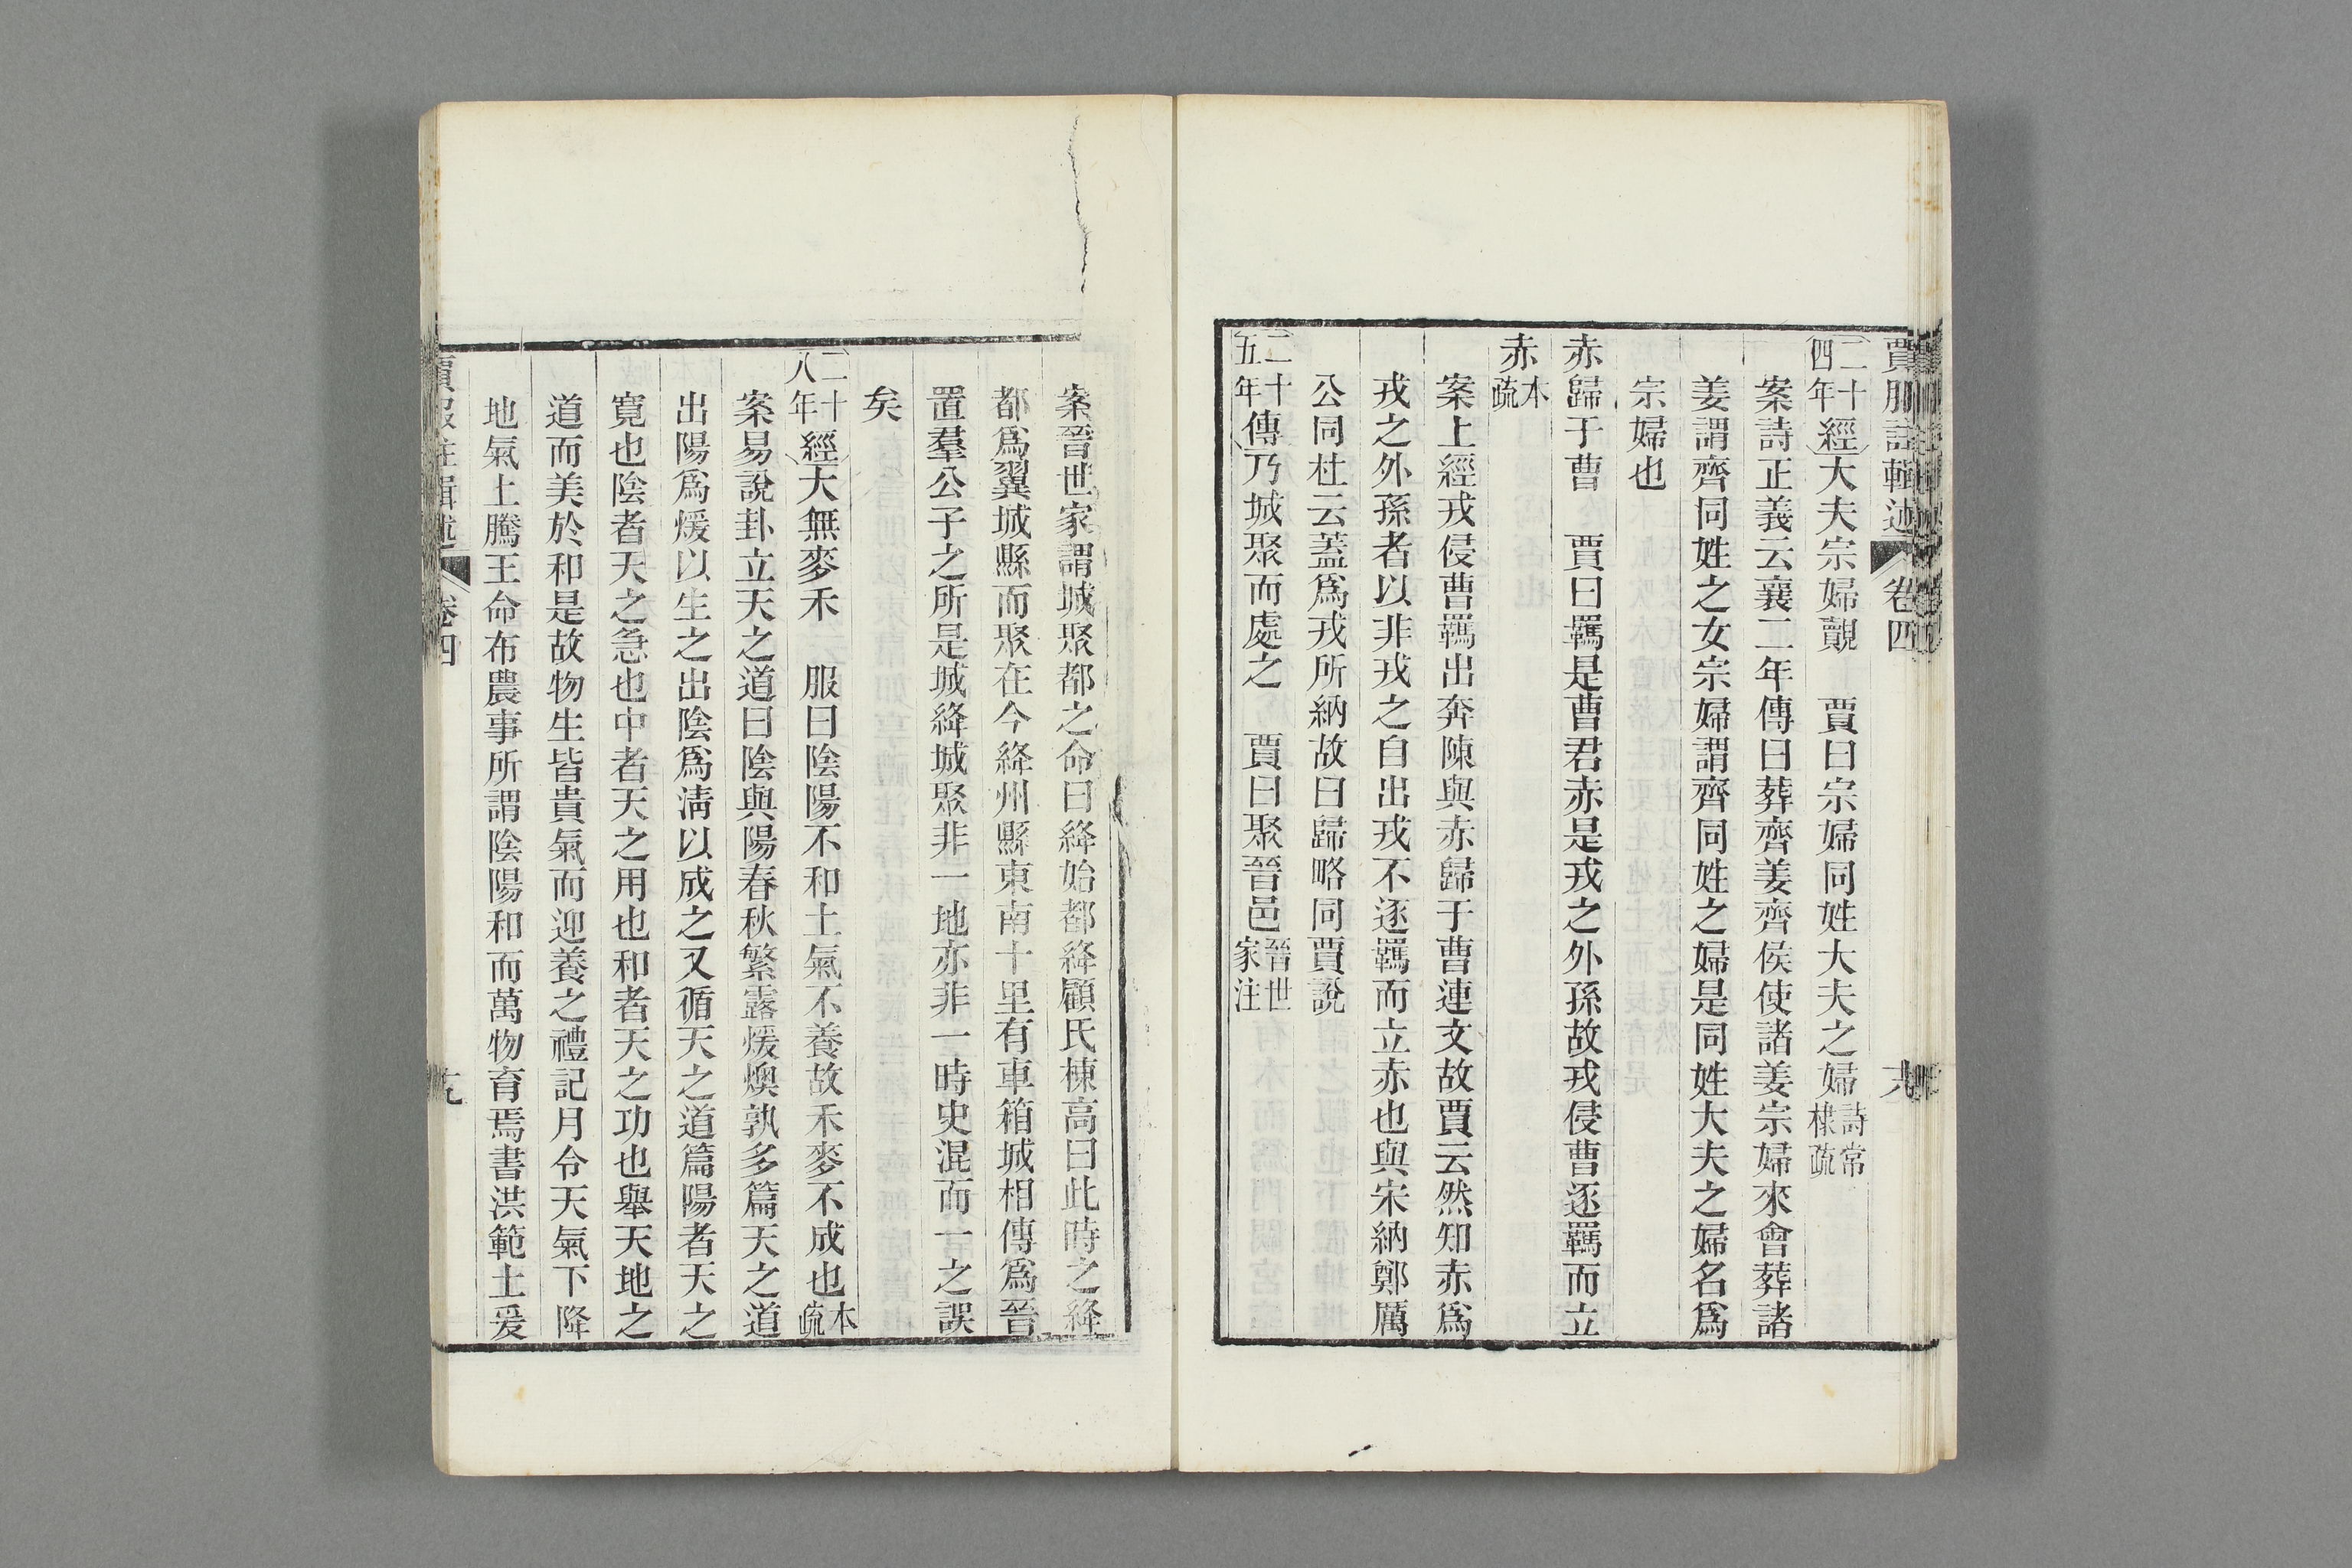 賈服註輯述 卷四
二十四年經大夫宗婦覿 賈曰宗婦同姓大夫之婦詩常棣疏
案詩正義云襄二年傳曰葬齊姜齊侯使諸姜宗婦來會葬諸
姜謂齊同姓之女宗婦謂齊同姓之婦是同姓大夫之婦名爲
宗婦也
赤歸于曹 賈曰羈是曹君赤是戎之外孫故戎侵曹逐羈而立
赤本疏
案上經戎侵曹曹羈出奔陳與赤歸于曹連文故賈云然知赤爲
戎之外孫者以非戎之自出戎不逐羈而立赤也與宋納鄭厲
公同杜云蓋爲戎所納故曰歸略同賈說
二十五年傳乃城聚而處之 賈曰聚晉邑晉世家注
案晉世家謂城聚都之命曰絳始都絳顧氏棟高曰此時之絳
都爲翼城縣而聚在今絳州縣東南十里有車箱城相傳爲晉
置羣公子之所是城絳城聚非一地亦非一時史混而一之誤
矣
二十八年經大無麥禾 服曰陰陽不和土氣不養故禾麥不成也本疏
案易說卦立天之道曰陰與陽春秋繁露煖燠孰多篇天之道
出陽爲煖以生之出陰爲淸以成之又循天之道篇陽者天之
寬也陰者天之急也中者天之用也和者天之功也舉天地之
道而美於和是故物生皆貴氣而迎養之禮記月令天氣下降
地氣上騰王命布農事所謂陰陽和而萬物育焉書洪範土爰
賈服註輯述 卷四